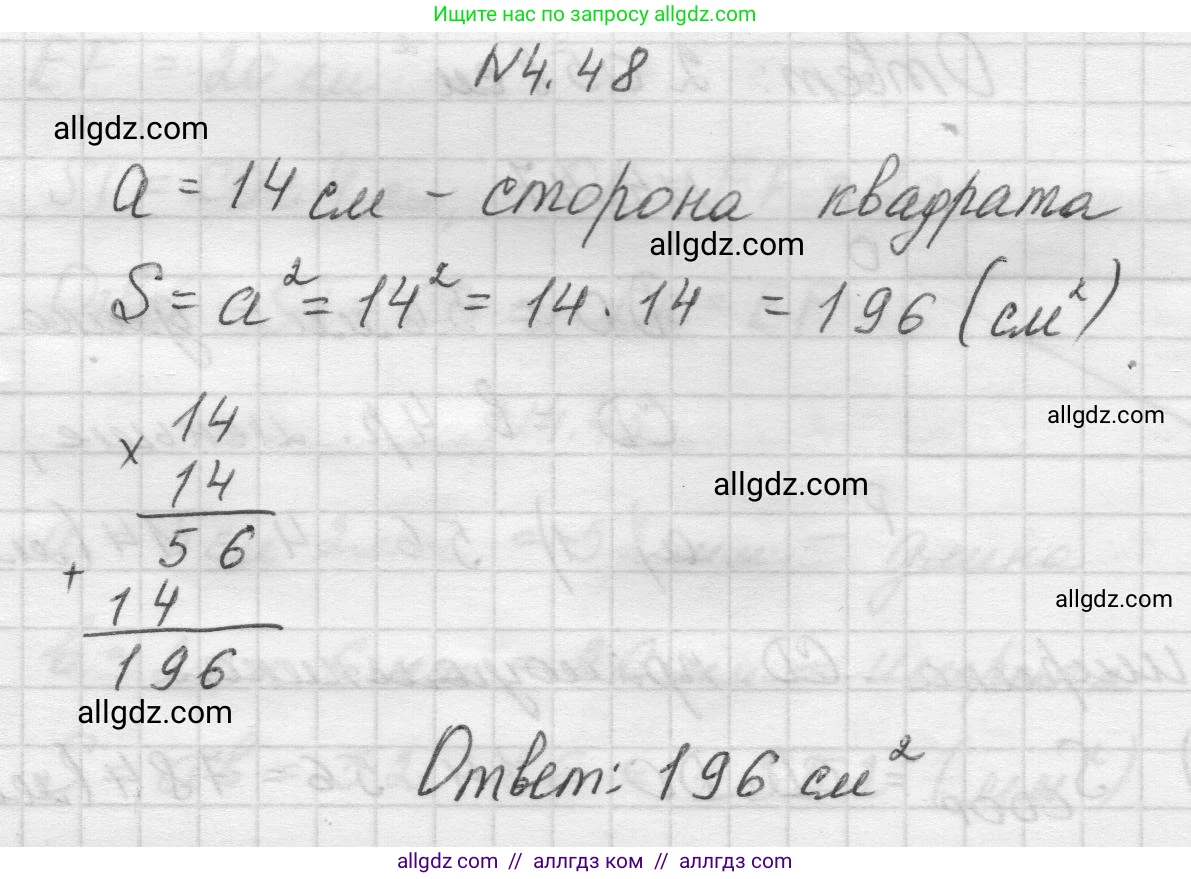 Ищите нас по запросу allgdz.com
N4.48
allgdz.com
a = 14 см - сторона квадрата
allgdz.com
S = a² = 14² = 14 · 14 = 196 (см²)
14
allgdz.com
x
14
allgdz.com
56
+
14
allgdz.com
196
allgdz.com
Ответ: 196 см²
allgdz.com // аллгдз ком // аллгдз.com